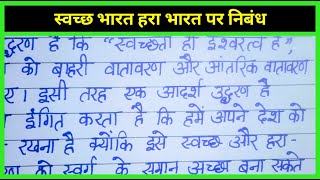 स्वच्छ भारत हरा भारत पर निबंध
द्धरण है कि "स्वच्छता ही ईश्वरत्व है",
को बाहरी वातावरण और आंतरिक वातावरण
ए। इसी तरह एक आदर्श उद्धरण है
इंगित करता है कि हमें अपने देश को
रखना है क्योंकि इसे स्वच्छ और हरा-
को स्वर्ग के समान अच्छा बना सकते